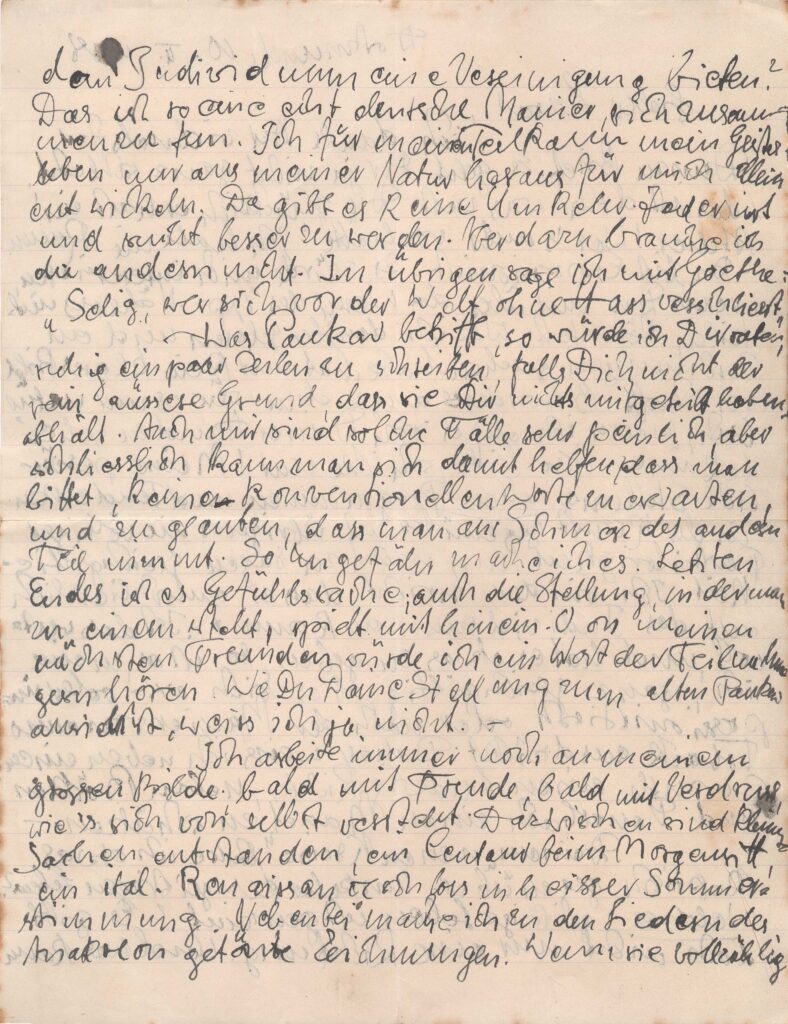 dem Individuum eine Vereinigung bieten?
Das ist so eine echt deutsche Manier, sich zusam-
menzu tun. Ich für meinen Teil kann mein Geistes-
leben nur aus meiner Natur heraus für mich allein
entwickeln. Da gibt es keine Umkehr. Jeder
und sucht besser zu werden. Aber dazu brauche ich
die andern nicht. Im übrigen sage ich mit Goethe:
"Selig, wer sich vor der Welt ohne Hass verschliesst"
– Was Pankok betrifft, so würde ich Dir raten,
ruhig ein paar Zeilen zu schreiben, falls Dich nicht der
rein äussere Grund, dass sie Dir nichts mitgeteilt haben,
abhält. Auch mir sind solche Fälle sehr peinlich, aber
schliesslich kann man sich damit helfen, dass man
bittet, keine konventionellen Worte zu erwarten,
und zu glauben, dass man am Schmerz des andern
Teil nimmt. So ungefähr mache ich es. Letzten
Endes ist es Gefühlssache, auch die Stellung, in der man
zu einem steht, spielt mit hinein. Von meinen
nächsten Freunden würde ich ein Wort der Teilnahme
gern hören. Wie Du Deine Stellung zum alten Pankok
ansiehst, weiss ich ja nicht. –
Ich arbeite immer noch an meinem
grossen Bilde bald mit Freude, bald mit Verdruss,
wie's sich von selbst versteht. Dazwischen sind kleine
Sachen entstanden, ein Centaur beim Morgenritt,
ein ital. Renaissanceschloss in heisser Sommer-
stimmung. Nebenbei mache ich zu den Liedern des
Anakreon getönte Zeichnungen. Wenn sie vollzählig